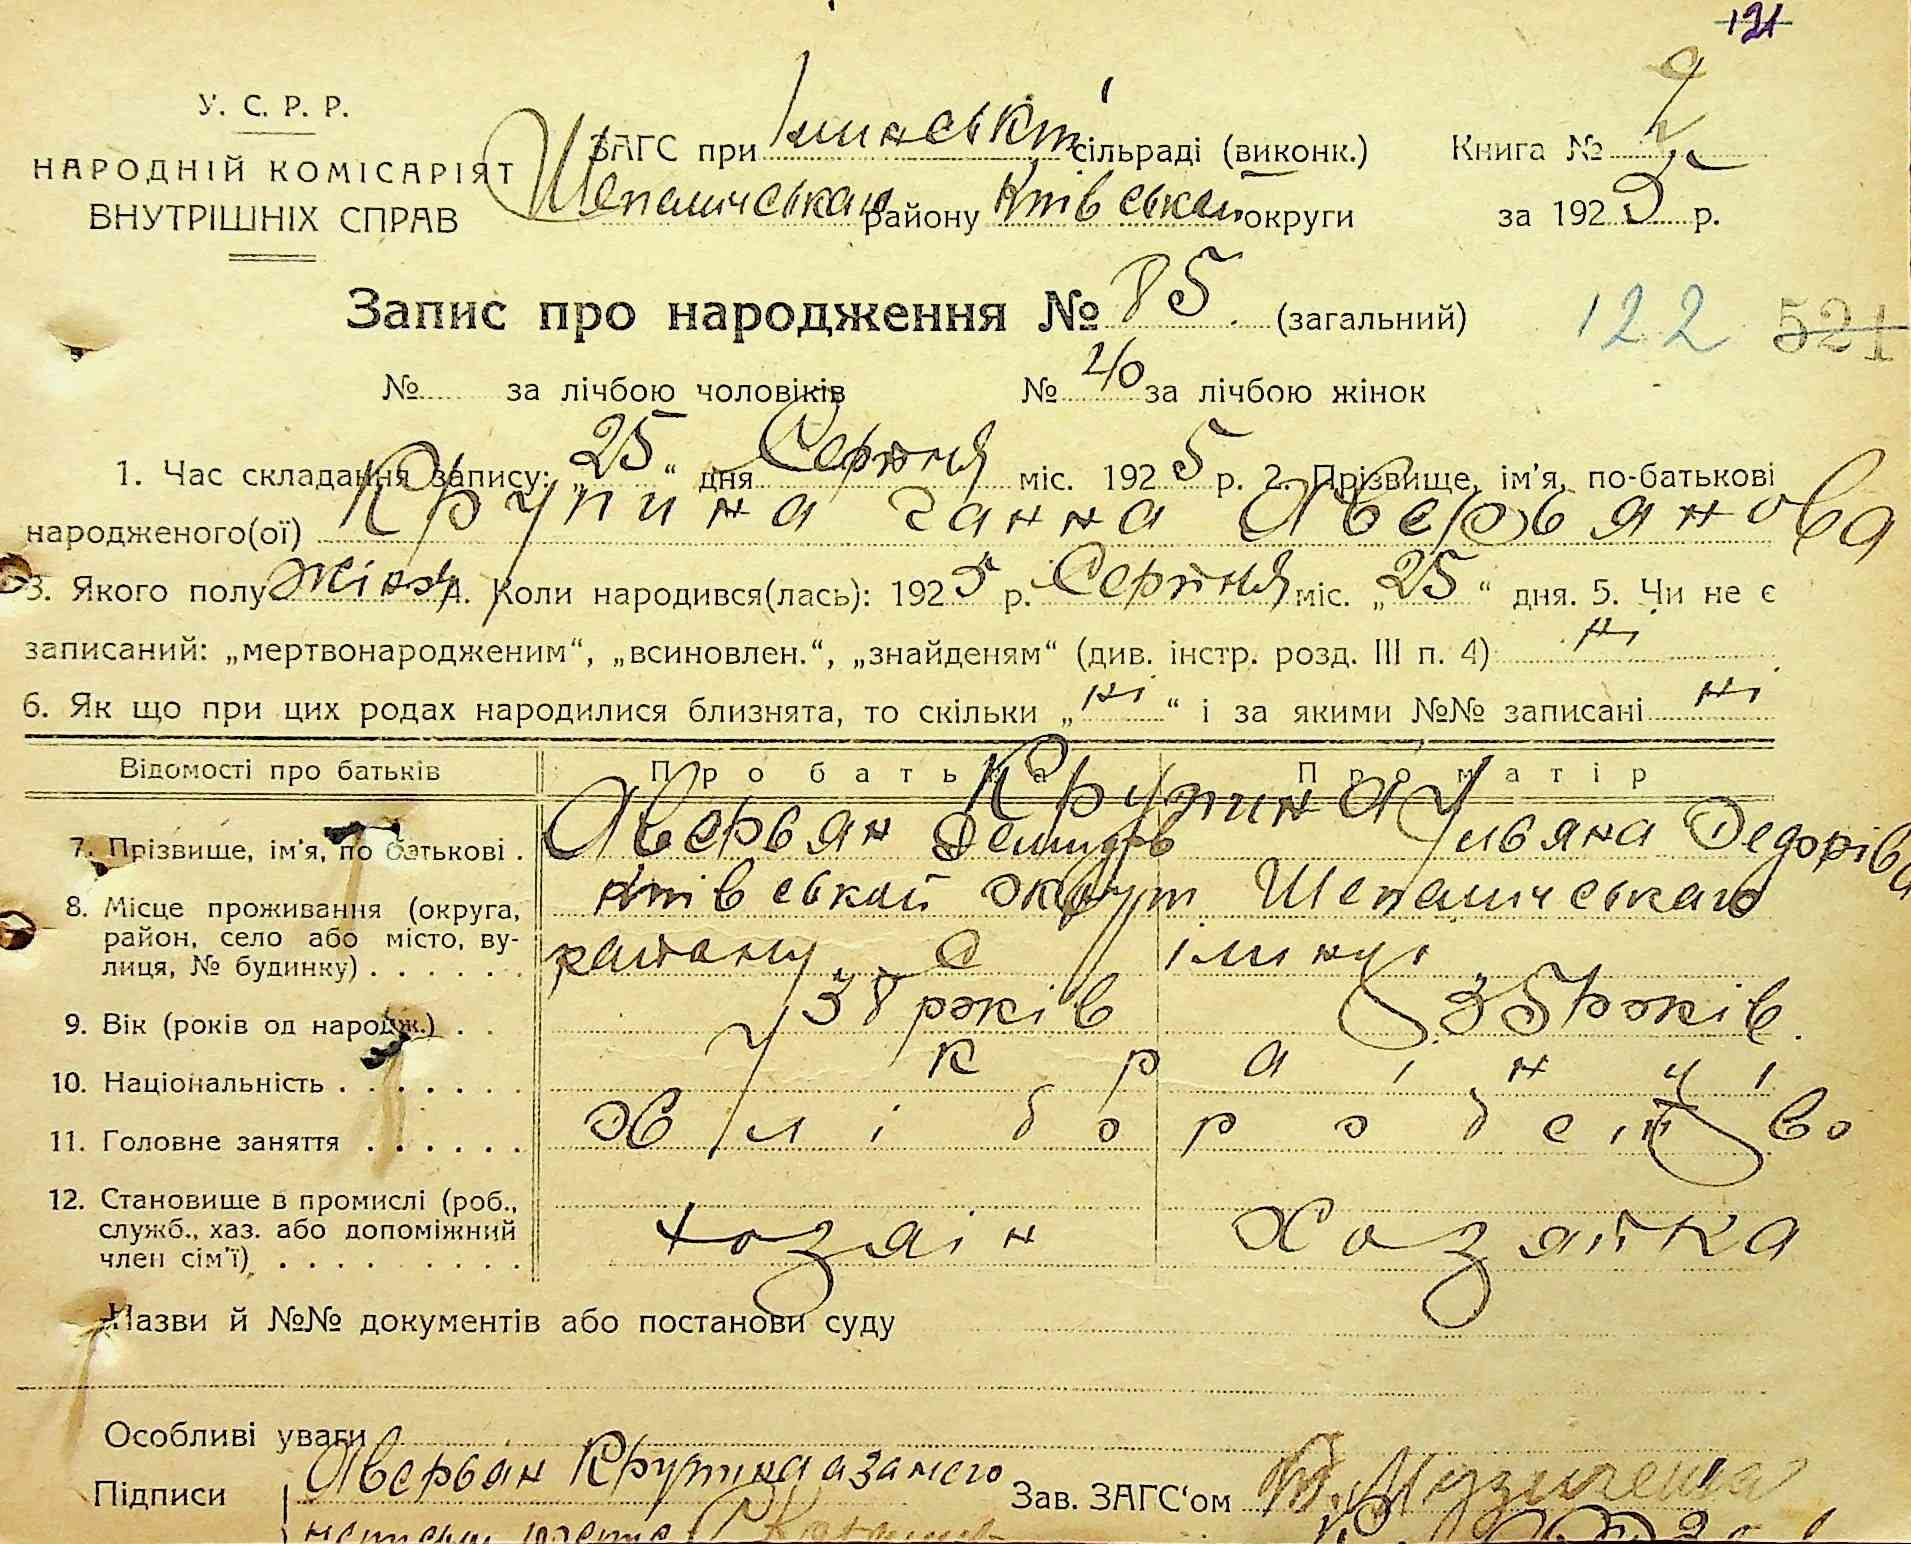 121
У. С. Р. Р.
НАРОДНІЙ КОМІСАРІЯТ
ВНУТРІШНІХ СПРАВ
ЗАГС при сільраді (виконк.)
Шепеличського району Київськой округи
Книга № 2
за 1925 р.
Запис про народження № 85. (загальний)
122 521
№ за лічбою чоловіків № 40 за лічбою жінок
1. Час складання запису: „25“ дня Серпня міс. 1925 р. 2. Прізвище, ім'я, по-батькові
народженого(ої) Крупина Ганна Аверьянова
3. Якого полу жіноч. 4. Коли народився(лась): 1925 р. Серпня міс. „25“ дня. 5. Чи не є
записаний: „мертвонародженим“, „всиновлен.“, „знайденям“ (див. інстр. розд. III п. 4) ні
6. Як що при цих родах народилися близнята, то скільки „ні“ і за якими №№ записані ні
Відомості про батьків Про батька Про матір
Крупина
7. Прізвище, ім'я, по батькові . Аверьян Демидов Ульяна Федорівна
8. Місце проживання (округа, Київськой округи Шепеличського
район, село або місто, ву- району с Ілинці
лиця, № будинку) . . . . . .
9. Вік (років од народж.) . . 38 років 35 років.
10. Національність . . . . . . . Українці
11. Головне заняття . . . . . . Хліборобство
12. Становище в промислі (роб.,
служб., хаз. або допоміжний хозяін хозяйка
член сім'ї) . . . . . . . . .
Назви й №№ документів або постанови суду
Особливі уваги
Підписи Аверьян Крупина а за него
Зав. ЗАГС'ом